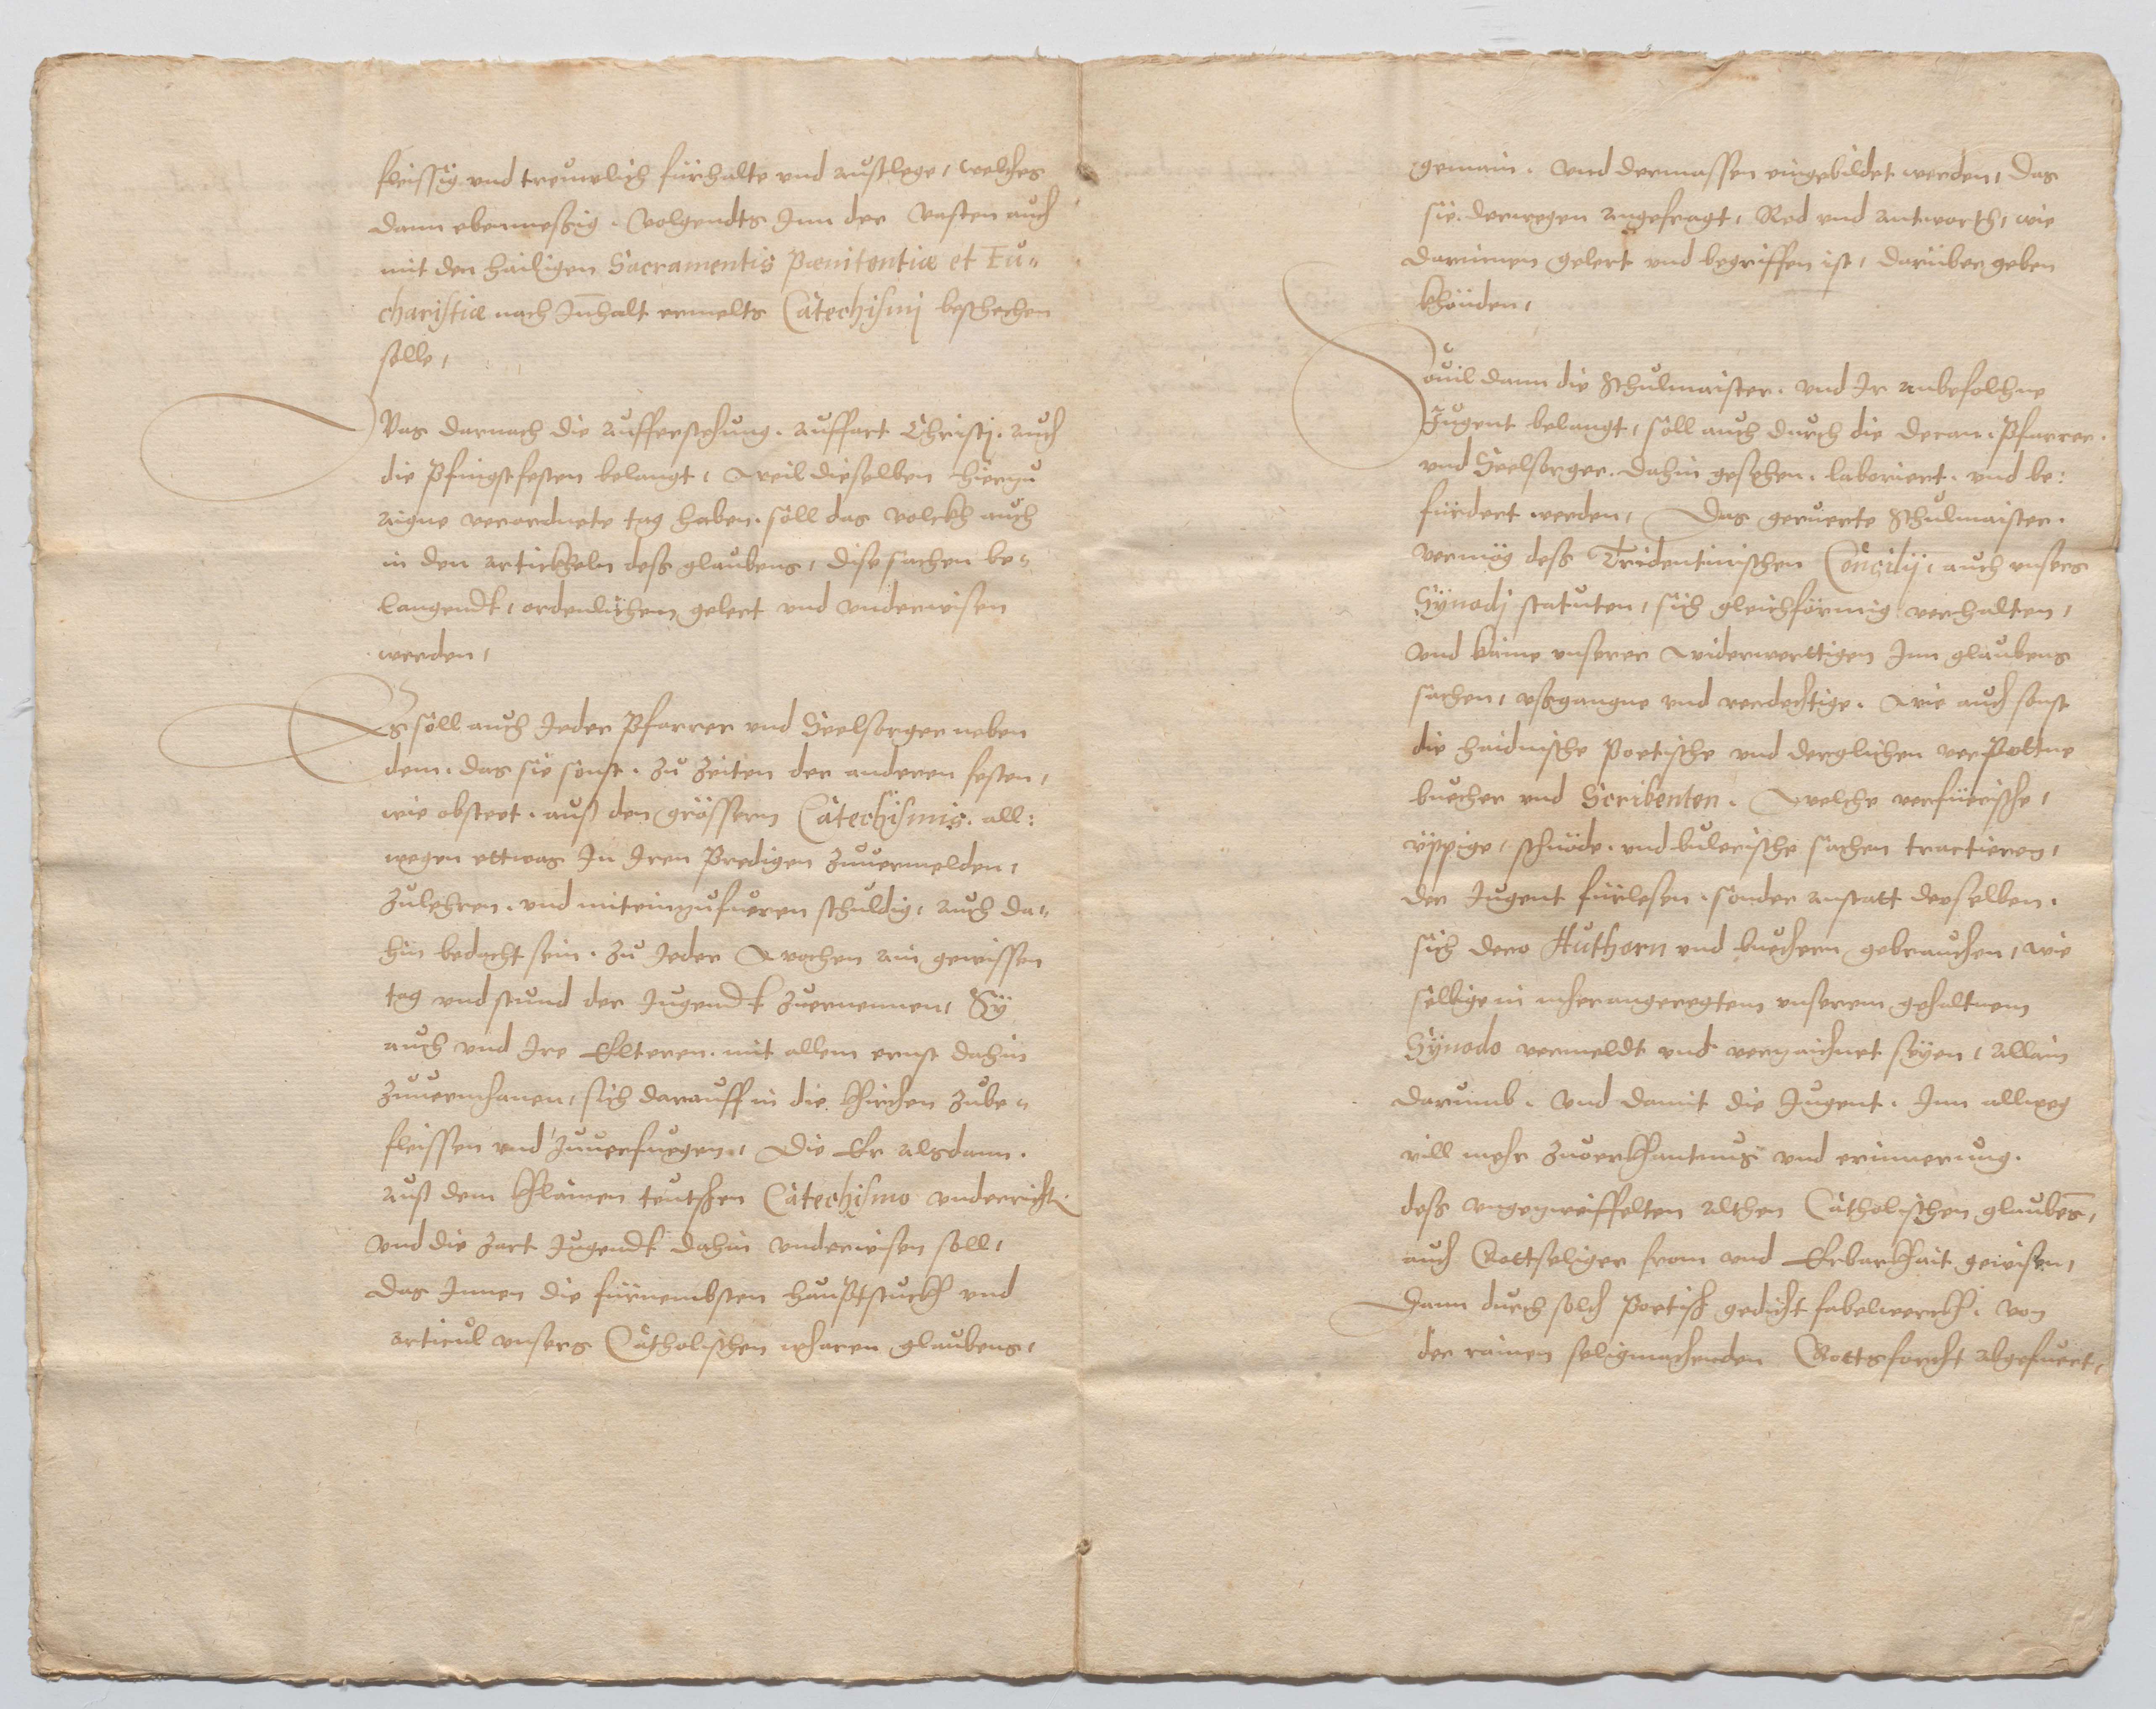 fleissig vnd treuwlich fürhalte vnd außlege, welches
dann ebenmeßig. Volgendts Inn der Vasten auch
mit den hailigen Sacramentis Pænitentiæ et Eu„
charistiæ nach Inhalt ermelts Catechismj beschechen
solle,
Was darnach die Aufferstehung. Auffart Christj. auch
die Pfingstfesten belangt, Weil dieselben hierzu
aigne verordnete tag haben. soll das volckh auch
in den artickheln deß glaubens, dise sachen be„
langendt, ordenlichen gelert vnd vnderwisen
werden,
Es soll auch Jeder Pfarrer vnd Seelsorger neben
dem. das sie sonst. zu Zeiten der anderen festen,
wie obsteet. auß den grössern Catechismis. all:
wegen ettwas In Iren Predigen zuuermelden,
zulehren. vnd miteinzufueren schuldig, auch da„
hin bedacht sein. zu Jeder Wochen ain gewissen
tag vnd stund der Jugendt zuernennen, Sÿ
auch vnd Ire Elteren. mit allem ernst dahin
zuuermhanen, sich darauff in die Kirchen zube„
fleissen vnd zuuerfuegen, Die Er alsdann.
auß dem Khlainen teutschen Catechismo vnderricht
vnd die zart Jugendt dahin vnderwisen soll,
das Innen die fürnembsten hauptstuckh vnd
articul vnsers Catholischen wharen glaubens,
gemain. vnd dermassen eingebildet werden, das
sie. derwegen angefragt, Red vnd antworth, wie
darinnen gelert vnd begriffen ist, darüber geben
khönden,
Souil dann die Schulmaister. vnd Ir anbefolhne
Jugent belangt, soll auch durch die Decan. Pfarrer.
vnd Seelsorger. dahin gesehen. laboriert. vnd be:
fürdert werden, Das geruerte Schulmaister.
vermög deß Tridentinischen Concilij, auch vnsers
Sÿnodj statuten, sich gleichförmig verhalten,
vnd kaine vnserer widerwerttigen Inn glaubens
sachen, vßgangne vnd verdechtige. Wie auch sonst
die haidnische Poetische vnd derglichen verPottne
buecher vnd Scribenten. Welche verfüerische,
üppige, schnöde. vnd bulerische sachen tractieren,
der Jugent fürlesen. sonder anstatt derselben.
sich dero Authorn vnd buechern gebrauchen, wie
sollige in mherangeregtem vnserem gehaltnem
Sÿnodo vermeldt vnd verzaichnet seÿen, Allain
darumb. vnd damit die Jugent. Inn allweg
vill mehr zuerkhantnus vnd erinnerung.
deß vngezweiffelten althen Catholischen glaubens,
auch Gottseliger from vnd Erbarkhait gewisen,
Dann durch solch Poetisch gedicht fabelwerckh. von
der rainen seligmachenden Gottsforcht abgefuert,